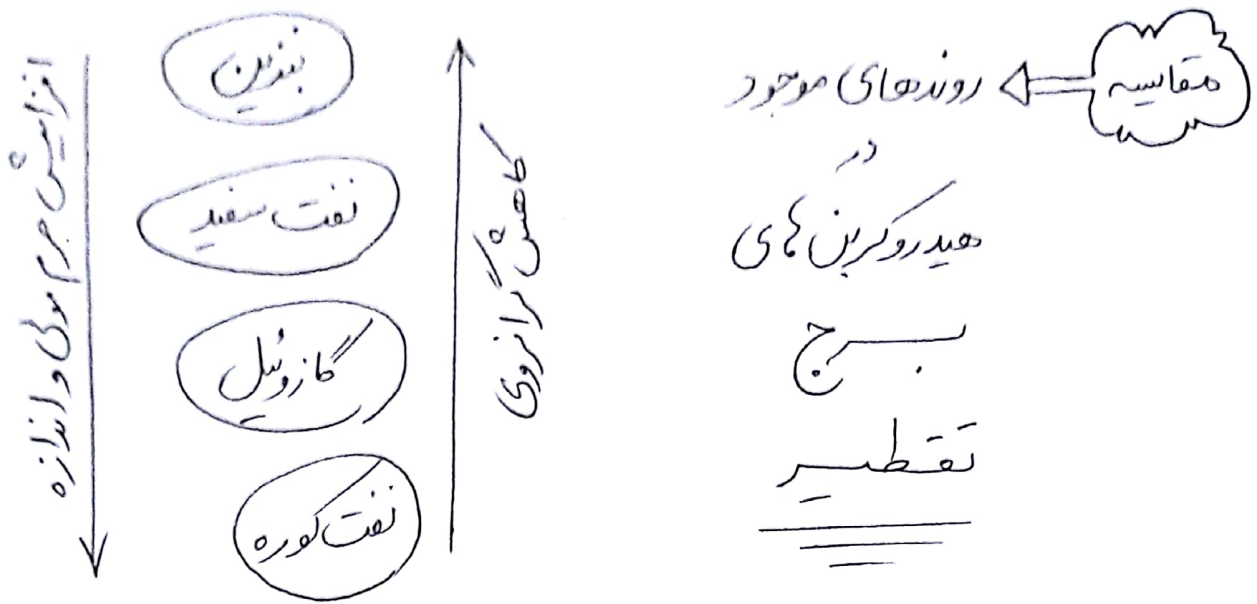 مقایسه
روندهای موجود
در
هیدروکربن های
برج
تقطیر
کاهش گرانروی
بنزین
نفت سفید
گازوئیل
نفت کوره
افزایش جرم مولی و اندازه